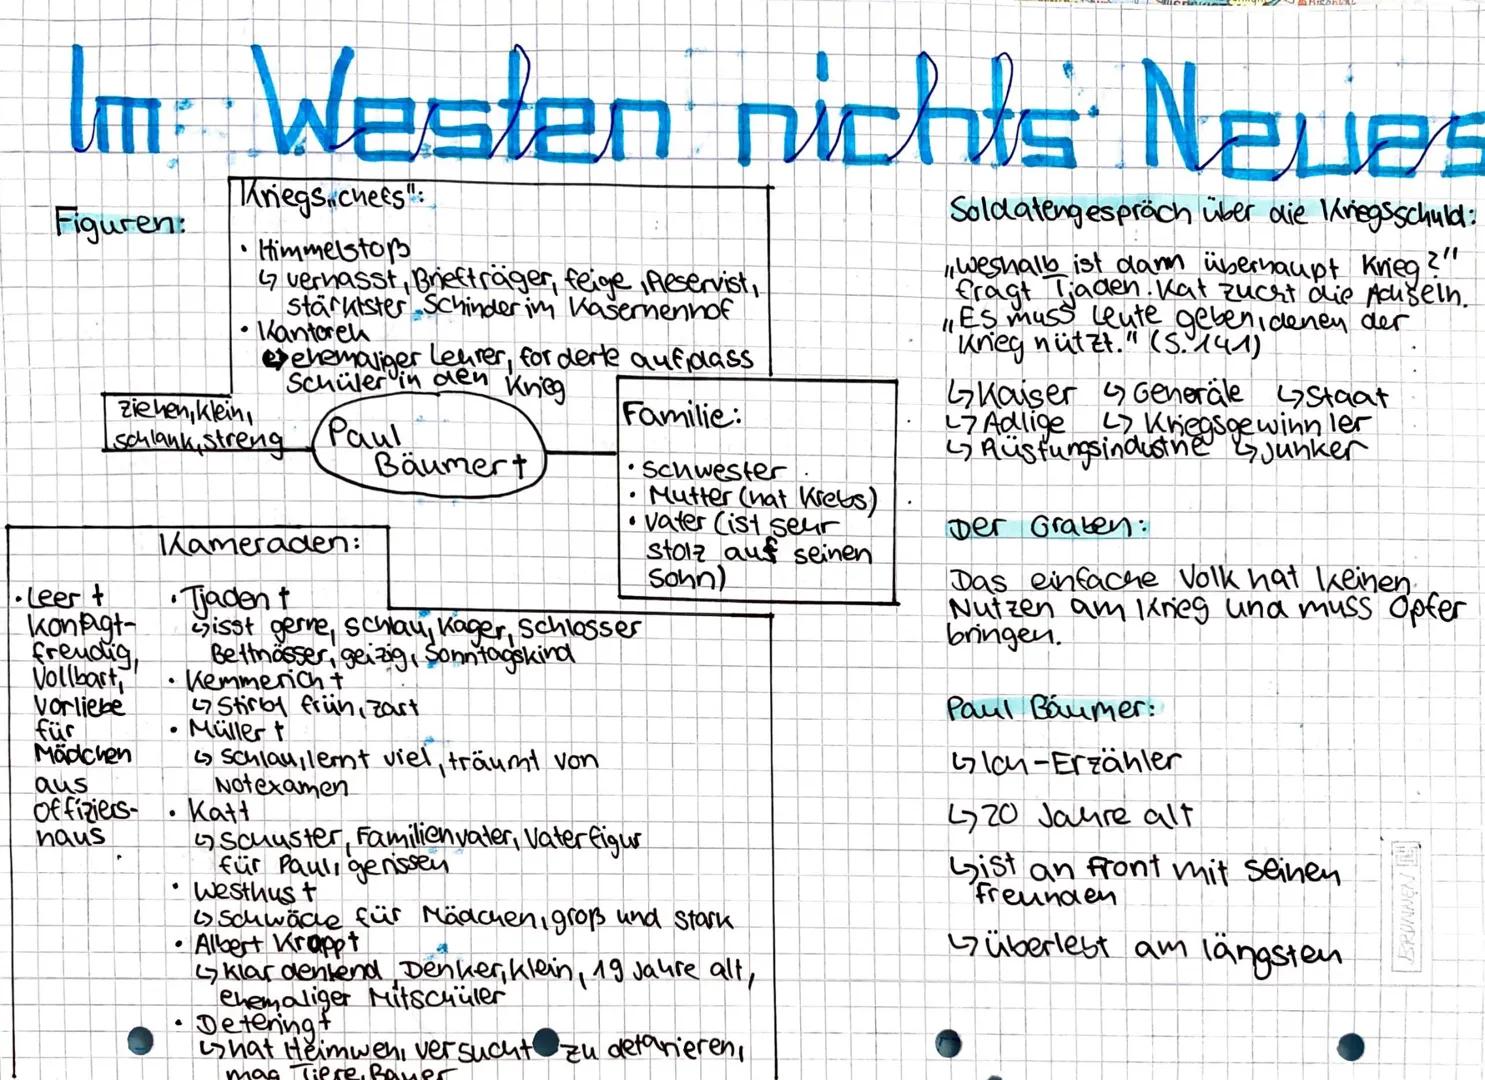 Im Westen nichts Neues
Figuren:
Kriegs„chefs":
• Himmelstoß
↳ verhasst, Briefträger, feige, Reservist,
stärktster Schinder im Kasernenhof
• Kantorek
↳ ehemaliger Lehrer, forderte auf, dass
Schüler in den Krieg
ziehen, klein,
schlank, streng
Paul
Bäumer †
Familie:
• Schwester
• Mutter (hat Krebs)
• Vater (ist sehr
stolz auf seinen
Sohn)
Kameraden:
• Leer †
freudig,
Vollbart,
Vorliebe
für
Mädchen
aus
Offiziers-
haus
• Tjaden †
↳ isst gerne, schlau, hager, Schlosser
Bettnässer, geizig, Sonntagskind
• Kemmerich †
↳ Stirbt früh, zart
• Müller †
↳ schlau, lernt viel, träumt von
Notexamen
• Kat †
↳ Schuster, Familienvater, Vaterfigur
für Paul, gerissen
• Westhus †
↳ Schwäche für Mädchen, groß und stark
• Albert Kropp †
↳ klar denkend, Denker, klein, 19 Jahre alt,
ehemaliger Mitschüler
• Detering †
↳ hat Heimweh, versucht zu detarieren,
mag Tiere, Bauer
Soldatengespräch über die Kriegsschuld:
„Weshalb ist dann überhaupt Krieg?"
fragt Tjaden. Kat zuckt die Achseln.
„Es muss Leute geben, denen der
Krieg nützt." (S. 141)
↳ Kaiser ↳ Generäle ↳ Staat
↳ Adlige ↳ Kriegsgewinnler
↳ Rüstungsindustrie ↳ Junker
Der Graben:
Das einfache Volk hat keinen
Nutzen am Krieg und muss Opfer
bringen.
Paul Bäumer:
↳ Ich-Erzähler
↳ 20 Jahre alt
↳ ist an Front mit seinen
Freunden
↳ überlebt am längsten